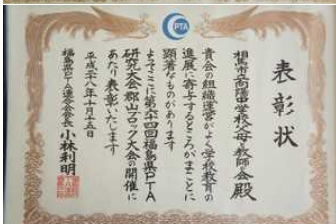 PTA
表彰状
相馬市立向陽中学校父母と教師の会殿
貴会の組織運営がよく学校教育の
進展に寄与するところがまことに
顕著なものがあります
よってここに第六十四回福島県PTA
研究大会郡山ブロック大会の開催に
あたり表彰いたします
平成二十八年十月十五日
福島県PTA連合会会長 小林利明